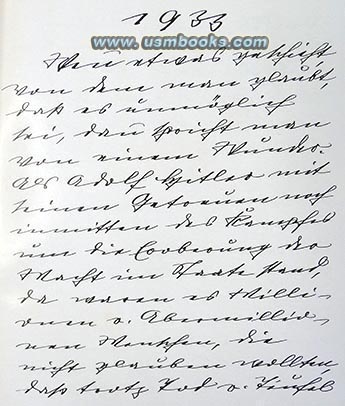 1933
www.usmbooks.com
Wenn etwas geschieht,
von dem man glaubt,
daß es unmöglich
sei, dan spricht man
von einem Wunder.
Als Adolf Hitler mit
seinen Getreuen noch
inmitten des Kampfes
um die Eroberung der
Macht im Staate stand,
da waren es Milli-
onen u. Abermillio-
nen Menschen, die
nicht glauben wollten,
daß trotz Tod u. Teufel